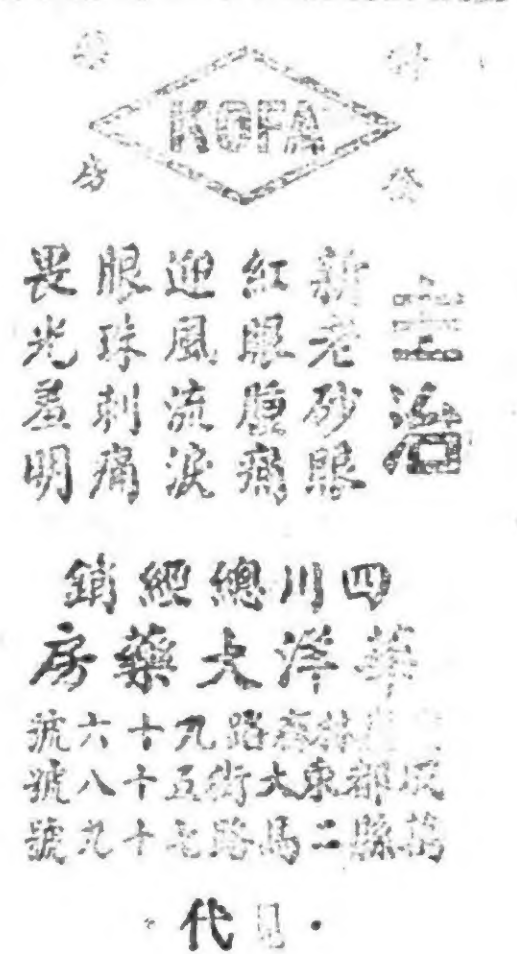 KOFA
主治
新老砂眼
紅眼腫痛
迎風流淚
眼珠刺痛
畏光羞明
四川總經銷
華洋大藥房
林森路九十六號
成都東大街五十八號
萬縣二馬路七十九號
代